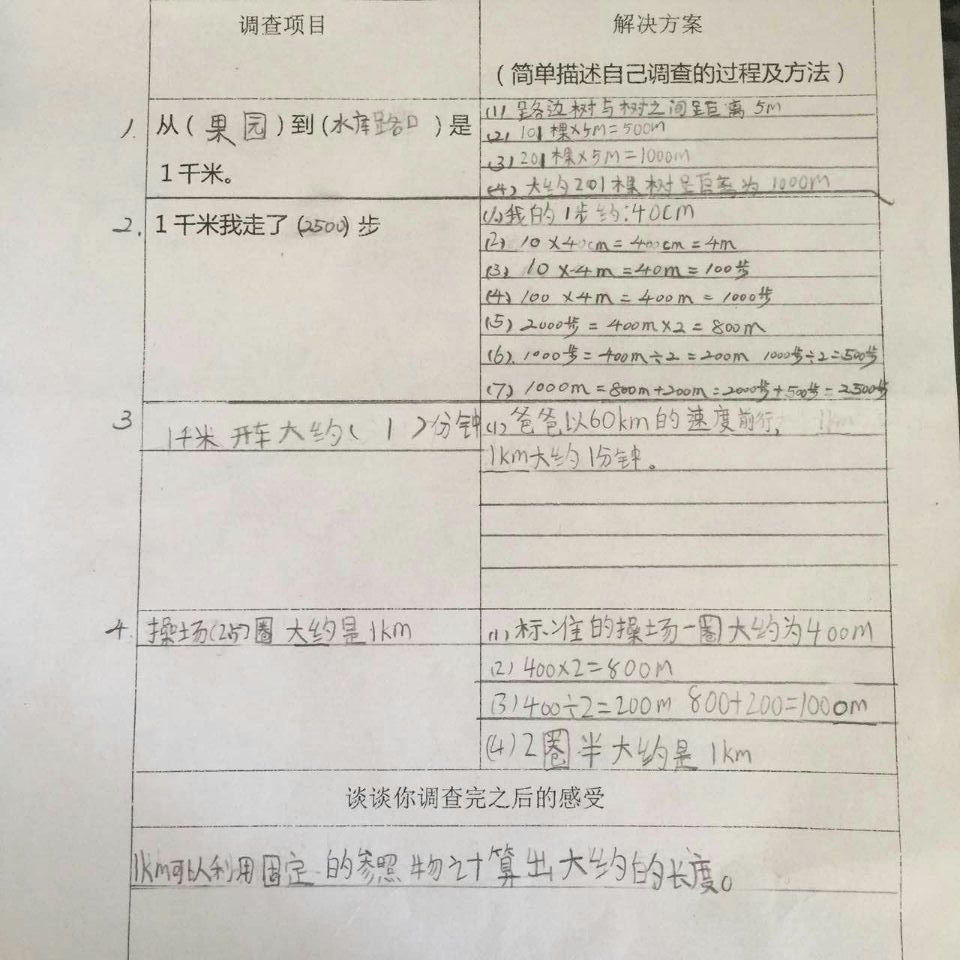 调查项目
解决方案
（简单描述自己调查的过程及方法）
1. 从（果园）到（水库路口）是
1千米。
(1) 路边树与树之间距离5m
(2) 101棵×5m=500m
(3) 201棵×5m=1000m
(4) 大约201棵树距离为1000m
2. 1千米我走了(2500)步
(1)我的1步约:40cm
(2) 10×40cm=400cm=4m
(3) 10×4m=40m=100步
(4) 100×4m=400m=1000步
(5) 2000步=400m×2=800m
(6). 1000步=400m÷2=200m 1000步÷2=500步
(7) 1000m=800m+200m=2000步+500步=2500步
3 1千米开车大约(1)分钟
(1)爸爸以60km的速度前行, 1km
1km大约1分钟。
4. 操场(2.5)圈大约是1km
(1)标准的操场一圈大约为400m
(2) 400×2=800m
(3) 400÷2=200m 800+200=1000m
(4) 2圈半大约是1km
谈谈你调查完之后的感受
1km可以利用固定的参照物计算出大约的长度。